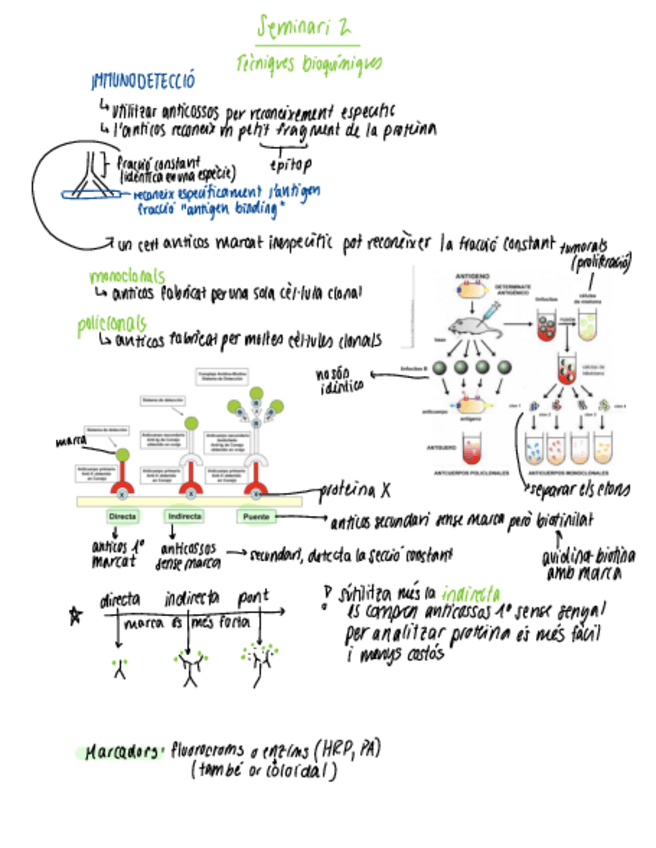 Seminari 2
Tècniques bioquímiques
IMMUNODETECCIÓ
↳ utilitzar anticossos per reconeixement específic
↳ l'anticòs reconeix un petit fragment de la proteïna
epítop
fracció constant
(idèntica en una espècie)
reconeix específicament l'antigen
fracció "antigen binding"
un cert anticòs marcat inespecífic pot reconèixer la fracció constant
tumorals
(proliferació)
monoclonals
↳ anticòs fabricat per una sola cèl·lula clonal
policlonals
↳ anticòs fabricat per moltes cèl·lules clonals
ANTIGENO
DETERMINATE
ANTIGÉNICO
linfocitos
células
de mieloma
bazo
linfocitos B
no són
idèntics
anticuerpo
antígeno
clon 1
clon 2
clon 3
clon 4
ANTISUERO
ANTICUERPOS POLICLONALES
ANTICUERPOS MONOCLONALES
separar els clons
Complejo Avidina-Biotina
Sistema de Detección
Sistema de detección
Sistema de detección
marca
Anticuerpo secundario
Anticuerpo secundario
Anticuerpo primario
Anticuerpo primario
Anticuerpo primario
X
X
X
proteïna X
Directa
Indirecta
Puente
anticòs secundari sense marca però biotinilat
anticòs 1º
marcat
anticossos
sense marca
secundari, detecta la secció constant
avidina-biotina
amb marca
directa indirecta pont
marca és més forta
s'utilitza més la indirecta
es compren anticossos 1º sense senyal
per analitzar proteïna és més fàcil
i menys costós
Marcadors: fluorocroms o enzims (HRP, PA)
(també or coloïdal)